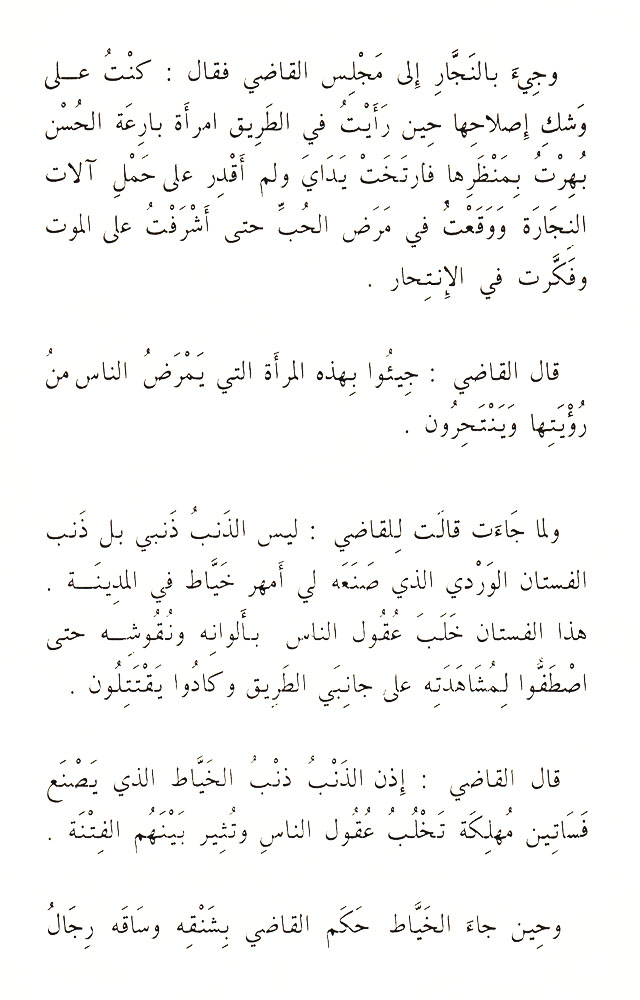 وجِيءَ بالنَجَّارِ إِلى مَجْلِس القاضي فقال : كنْتُ عــلى
وَشكِ إِصلاحِها حِين رَأَيْتُ في الطَرِيق امرأَة بارِعَة الحُسْن
بُهِرْتُ بِمَنْظَرِها فارتَخَتْ يَدَايَ ولم أَقْدِر على حَمْلِ آلات
النِجَارَة وَوَقَعْتُ في مَرَض الحُبِّ حتى أَشْرَفْتُ على الموت
وفَكَّرت في الإِنتِحار .
قال القاضي : جِيئُوا بِهذه المرأَة التي يَمْرَضُ الناس منُ
رُؤْيَتِها وَيَنْتَحِرُون .
ولما جَاءَت قالَت لِلقاضي : ليس الذَنبُ ذَنبي بل ذَنب
الفستان الوَرْدي الذي صَنَعَه لي أَمهر خَيَّاط في المدِينَــة .
هذا الفستان خَلَبَ عُقُول الناس بأَلوانِه ونُقُوشِــه حتى
اصْطَفُّوا لِمُشَاهَدَتِه على جانِبَي الطَرِيق وكادُوا يَقْتَتِلُون .
قال القاضي : إِذن الذَنْبُ ذنْبُ الخَيَّاط الذي يَصْنَع
فَسَاتِين مُهلِكَة تَخْلُبُ عُقُول الناسِ وتُثِير بَيْنَهُم الفِتْنَة .
وحِين جاءَ الخَيَّاط حَكَم القاضي بِشَنْقِه وسَاقَه رِجَالُ